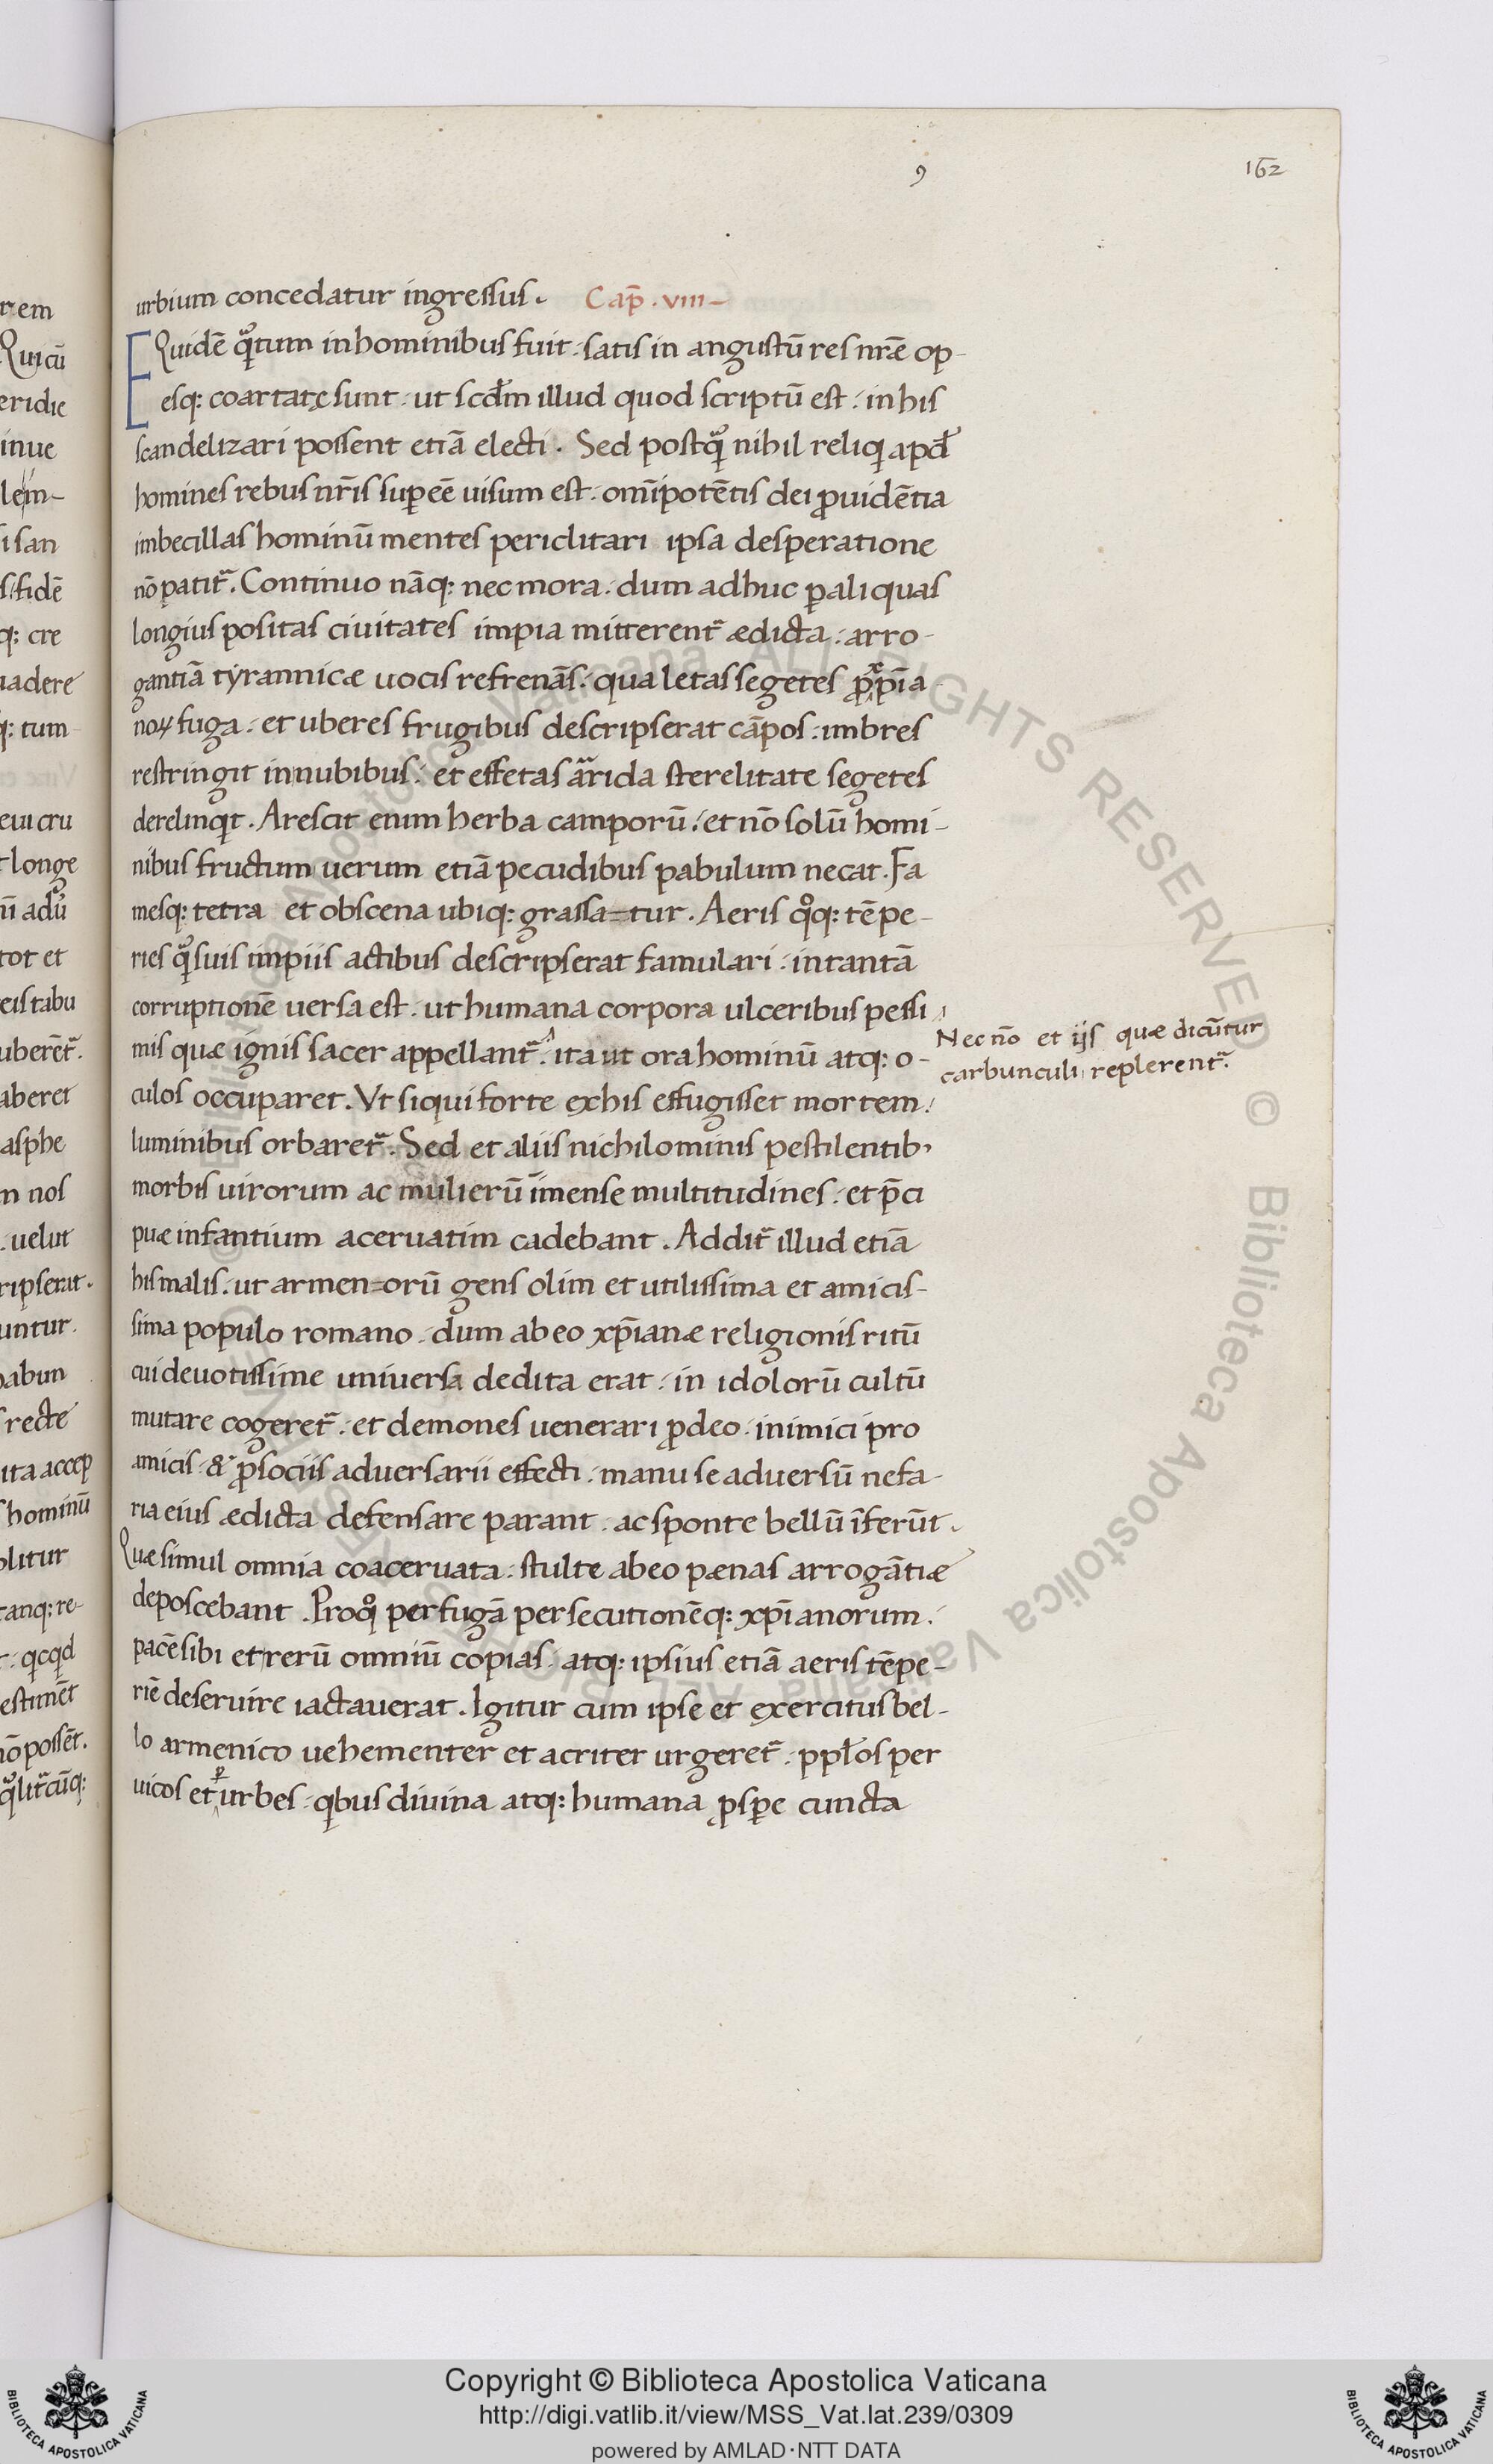 9
162
urbium concedatur ingressus. Cap̄. VIII
EQuidē q̨ͣtum in hominibus fuit. satis in angustū res nr̄æ op-
esq: coartatę sunt. ut scđm illud quod scriptū est. in his
scandelizari possent etiā electi. Sed postq̨ͣ nihil reliqi apđ
homines rebus nr̄is sup̱eē uisum est. om̄ipotētis dei ꝓuidētia
imbecillas hominū mentes periclitari ipsa desperatione
nō patit᷑. Continuo nāq: nec mora. dum adhuc ꝑ aliquas
longius positas ciuitates impia mitterent᷑ ædicta. arro-
gantiā tyrannicæ uocis refrenās. qua letas segetes ꝓ xp̄ia
noꝝ fuga. et uberes frugibus descripserat cāpos. imbres
restringit in nubibus. et effetas arida sterelitate segetes
derelinqit. Arescit enim herba camporū. et nō solū homi-
nibus fructum uerum etiā pecudibus pabulum necat. Fa
mesq: tetra et obscena ubiq: grassa=tur. Aeris qͦq: tēpe-
ries q̨ͣ suis impiis actibus descripserat famulari. in tantā
corruptionē uersa est. ut humana corpora ulceribus pessi
mis quæ ignis sacer appellant᷑. ita ut ora hominū atq: o-
Nec nō et ijs quæ dicūtur
carbunculi replerent᷑.
culos occuparet. Vt siqui forte ex his effugisset mortem.
luminibus orbaret᷑. Sed et aliis nichilominis pestilentib,
morbis uirorum ac mulierū īmense multitudines. et p̄ci
puæ infantium aceruatim cadebant. Addit᷑ illud etiā
his malis. ut armen=orū gens olim et utilissima et amicis-
sima populo romano. dum ab eo xp̄ianæ religionis ritū
cui deuotissime uniuersa dedita erat. in idolorū cultū
mutare cogeret᷑. et demones uenerari ꝓ deo. inimici pro
amicis. & ꝓ sociis aduersarii effecti. manu se aduersū nefa-
ria eius ædicta defensare parant. ac sponte bellū īferūt.
Quæ simul omnia coaceruata. stulte ab eo pænas arrogātiæ
deposcebant. Pro qͦ per fugā persecutionēq: xp̄ianorum.
pacē sibi et rerū omniū copias. atq: ipsius etiā aeris tēpe-
riē deseruire iactauerat. Igitur cum ipse et exercitus bel-
lo armenico uehementer et acriter urgeret᷑. ppłos per
uicos et ꝑ urbes. qibus diuina atq: humana ꝓspe̱ cuncta
Copyright © Biblioteca Apostolica Vaticana
http://digi.vatlib.it/view/MSS_Vat.lat.239/0309
powered by AMLAD·NTT DATA